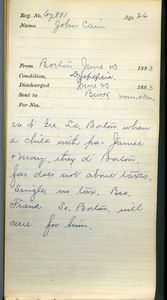 Reg. No. 67,881 Age 26
Name John Cain
From Boston June 23 1883
Condition,
Discharged June 23 1883
Sent to
For Nos.
26 S. Ire, Ld. Boston when
a child with fa- James
+ Mary, they d Boston,
fas does not know taxes.
Single, no tax. Bro.
Frank So. Boston, will
care for him.